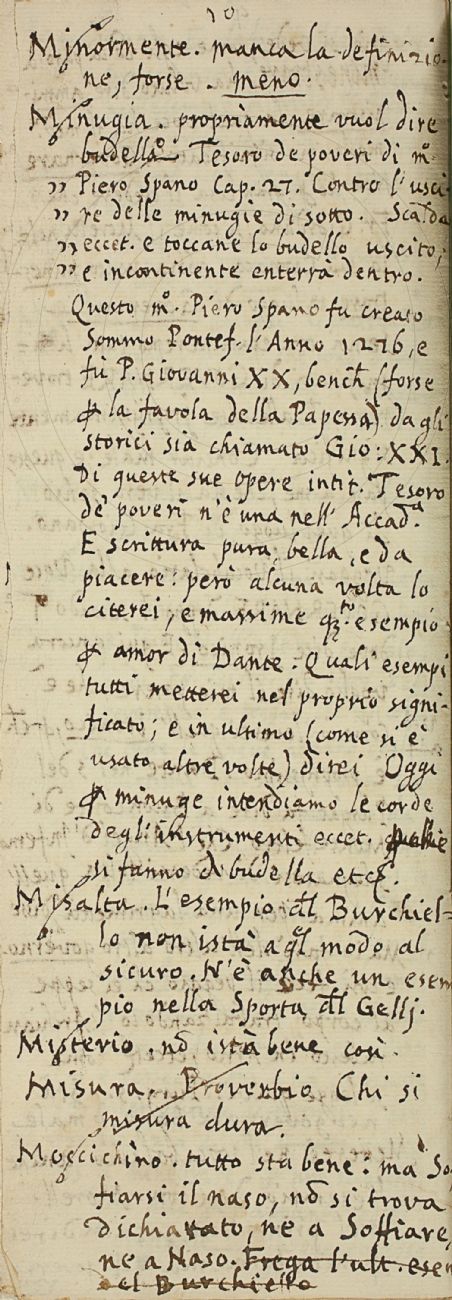 10
Minormente. manca la definizio-
ne, forse. meno.
Minugia. propriamente vuol dire
budella. Tesoro de poveri di mº.
„ Piero Spano Cap. 27. Contro l'usci-
„ re delle minugie di sotto. Scalda
„ eccet. e toccane lo budello uscito,
„ e incontinente enterrà dentro.
Questo mº. Piero Spano fu creato
Sommo Pontef. l'Anno 1276, e
fù P. Giovanni XX, bench (forse
ꝑ la favola della Papessa) dagli
storici sia chiamato Gio: XXI.
Di queste sue opere intit. Tesoro
de' poveri n'è una nell' Accad.ª
E scrittura pura, bella, e da
piacere: però alcuna volta lo
citerei, e massime q.to esempio
ꝑ amor di Dante. Quali esempi
tutti metterei nel proprio signi-
ficato; e in ultimo (come si è
usato altre volte) direi Oggi
ꝑ minuge intendiamo le corde
degl' instrumenti eccet. che
si fanno di budella etc.
Misalta. L'esempio dl Burchiel-
lo non istà a ql modo al
sicuro. N'è anche un esem
pio nella Sporta dl Gellj.
Misterio. nō istà bene così.
Misura. Proverbio Chi si
misura dura.
Moscichino. tutto sta bene: ma So
fiarsi il naso, nō si trova
dichiarato, ne a Soffiare,
ne a Naso. Frega l'ult. esem
del Burchiello